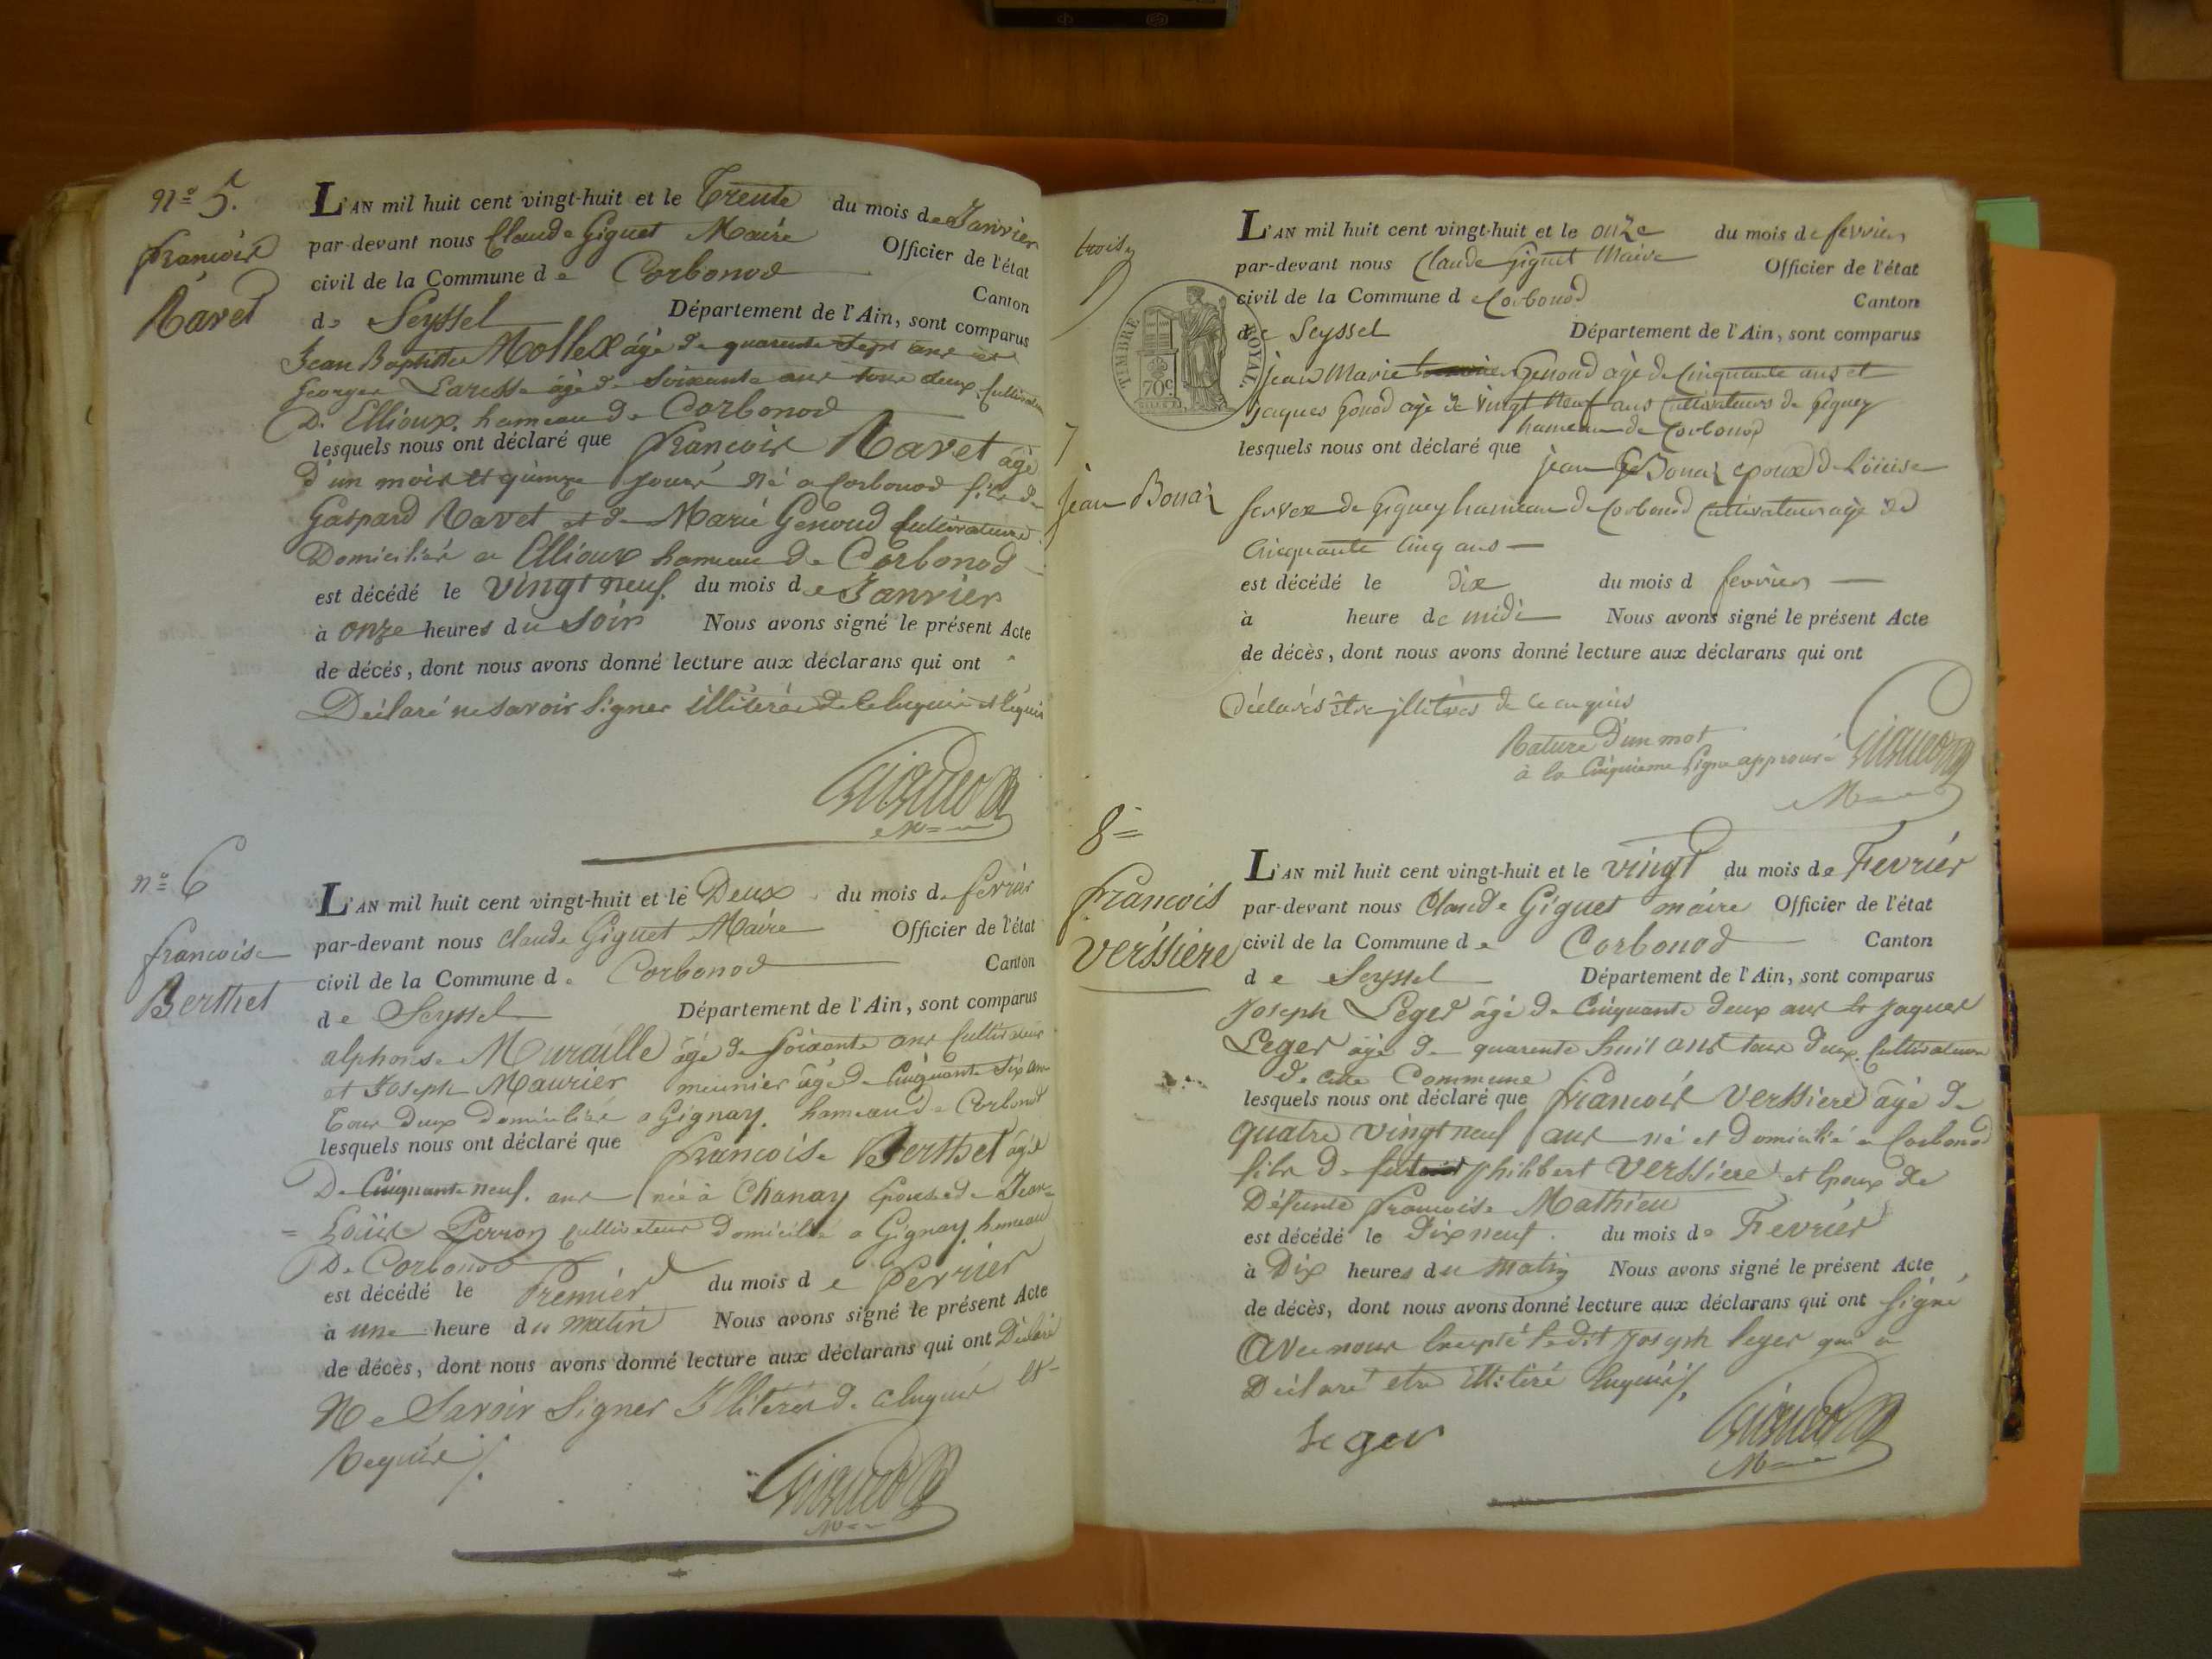 nº 5.
francois
Ravet
L'AN mil huit cent vingt-huit et le Trente du mois de Janvier
par-devant nous Claude Giguet Maire Officier de l'état
civil de la Commune de Corbonod Canton
de Seyssel Département de l'Ain, sont comparus
Jean Baptiste Mollex âgé de quarente sept ans et
George Laresse âgé de soixante ans tous deux Cultivateurs
D. Ellioux hameau de Corbonod
lesquels nous ont déclaré que francois Ravet agé
d'un mois et quinze jours né a Corbonod fils de
Gaspard Ravet et de Marie Genoud Cultivateurs
Domiciliés a Ellioux hameau de Corbonod
est décédé le vingt neuf du mois de Janvier
à onze heures du soir Nous avons signé le présent Acte
de décés, dont nous avons donné lecture aux déclarans qui ont
Declaré ne savoir signer illiterés de ce enquis et requis
nº 6
francoise
Berthet
L'AN mil huit cent vingt-huit et le Deux du mois de fevrier
par-devant nous Claude Giguet Maire Officier de l'état
civil de la Commune de Corbonod Canton
de Seyssel Département de l'Ain, sont comparus
alphonse Muraille âgé de soixante ans Cultivateur
et Joseph Maurier meunier âgé de Cinquante six ans
Tous deux domiciliés a Gignay hameau de Corbonod
lesquels nous ont déclaré que francoise Berthet agée
De Cinquante neuf ans née à Chanay Epouse de Jean=
= Louis Perron Cultivateur domicilié a Gignay hameau
De Corbonod
est décédé le Premier du mois de fevrier
à une heure du matin Nous avons signé le présent Acte
de décès, dont nous avons donné lecture aux déclarans qui ont Déclaré
Ne Savoir Signer Illiterés de ce enquis et=
Requis /.
trois
TIMBRE ROYAL.
70c
L'AN mil huit cent vingt-huit et le onze du mois de fevrier
par-devant nous Claude Giguet Maire Officier de l'état
civil de la Commune de Corbonod Canton
de Seyssel Département de l'Ain, sont comparus
jean Marie Genoud agé de Cinquante ans et
jaques Gonod agé de vingt neuf ans Cultivateurs de Giguey
hameau de Corbonod
7
jean Bonaz
lesquels nous ont déclaré que jean Bonaz epoux de Loüise
fervex de Giguey hameau de Corbonod Cultivateur agé de
Cinquante Cinq ans —
est décédé le dix du mois d fevrier —
à heure de midi Nous avons signé le présent Acte
de décès, dont nous avons donné lecture aux déclarans qui ont
déclarés être illitérés de ce enquis
Rature d'un mot
à la Cinquieme ligne approuvé
8=
francois
verssiere
L'AN mil huit cent vingt-huit et le vingt du mois de Fevrier
par-devant nous Claude Giguet maire Officier de l'état
civil de la Commune de Corbonod Canton
de Seyssel Département de l'Ain, sont comparus
Joseph Leger âgé de Cinquante deux ans et Jaques
Leger âgé de quarente huit ans tous deux Cultivateurs
de cette Commune
lesquels nous ont déclaré que francois Verssiere âgé de
quatre vingt neuf ans né et domicilié a Corbonod
fils de feu philibert Verssiere et Epoux de
Défunte francoise Mathieu
est décédé le Dix neuf du mois de Fevrier
à Dix heures du matin Nous avons signé le présent Acte
de décès, dont nous avons donné lecture aux déclarans qui ont signé
Avec nous Excepté ledit Joseph leger qui a
Déclaré etre illiteré Enquis /.
Leger